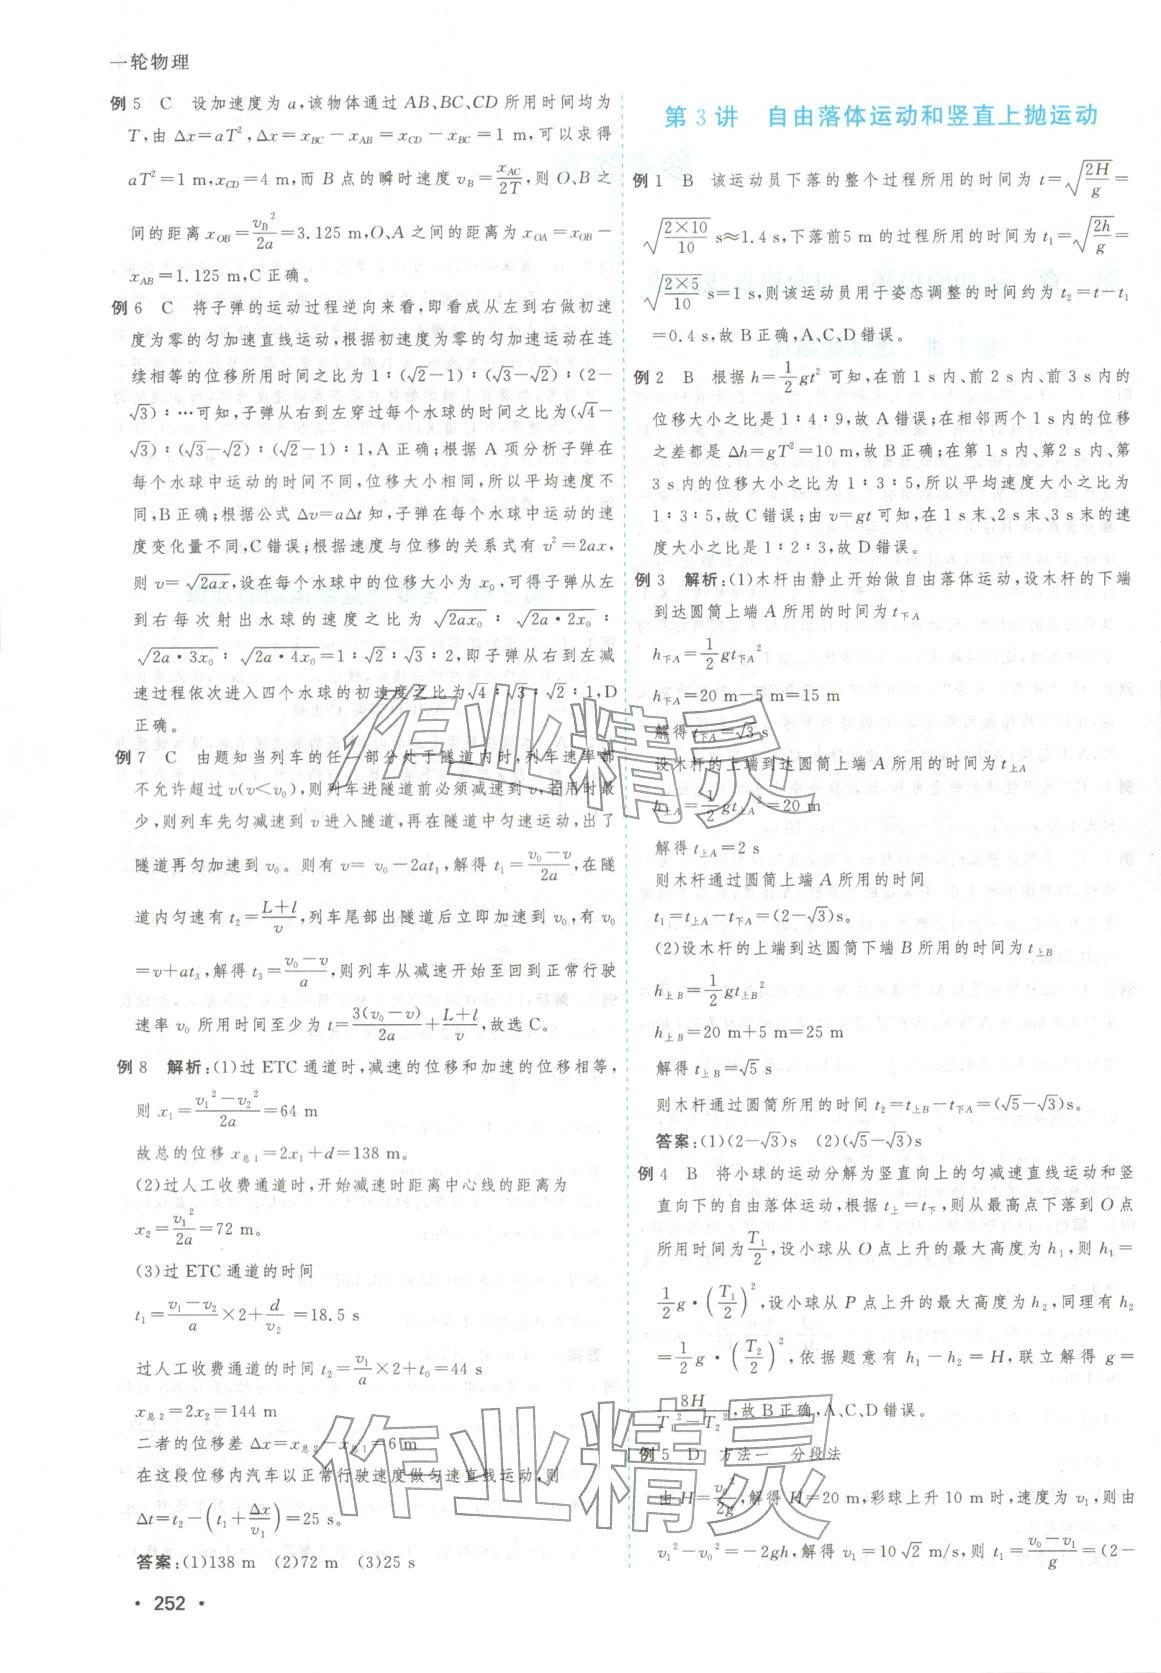 一轮物理
例 5　C　设加速度为 a,该物体通过 AB、BC、CD 所用时间均为
T,由 Δx=aT²,Δx=x_BC－x_AB=x_CD－x_BC=1 m,可以求得
aT²=1 m,x_CD=4 m,而 B 点的瞬时速度 v_B=x_AC/2T,则 O、B 之
间的距离 x_OB=v_B²/2a=3.125 m,O、A 之间的距离为 x_OA=x_OB－
x_AB=1.125 m,C 正确。
例 6　C　将子弹的运动过程逆向来看,即看成从左到右做初速
度为零的匀加速直线运动,根据初速度为零的匀加速运动在连
续相等的位移所用时间之比为 1∶(√2－1)∶(√3－√2)∶(2－
√3)∶…可知,子弹从右到左穿过每个水球的时间之比为(√4－
√3)∶(√3－√2)∶(√2－1)∶1,A 正确;根据 A 项分析子弹在
每个水球中运动的时间不同,位移大小相同,所以平均速度不
同,B 正确;根据公式 Δv=aΔt 知,子弹在每个水球中运动的速
度变化量不同,C 错误;根据速度与位移的关系式有 v²=2ax,
则 v=√(2ax),设在每个水球中的位移大小为 x₀,可得子弹从左
到右每次射出水球的速度之比为 √(2ax₀)∶√(2a·2x₀)∶
√(2a·3x₀)∶√(2a·4x₀)=1∶√2∶√3∶2,即子弹从右到左减
速过程依次进入四个水球的初速度之比为√4∶√3∶√2∶1,D
正确。
例 7　C　由题知当列车的任一部分处于隧道内时,列车速率都
不允许超过 v(v<v₀),则列车进隧道前必须减速到 v,若用时最
少,则列车先匀减速到 v 进入隧道,再在隧道中匀速运动,出了
隧道再匀加速到 v₀。则有 v= v₀－2at₁,解得 t₁=(v₀－v)/2a,在隧
道内匀速有 t₂=(L+l)/v,列车尾部出隧道后立即加速到 v₀,有 v₀
=v+at₃,解得 t₃=(v₀－v)/a,则列车从减速开始至回到正常行驶
速率 v₀ 所用时间至少为 t=3(v₀－v)/2a+(L+l)/v,故选 C。
例 8　解析:(1)过 ETC 通道时,减速的位移和加速的位移相等,
则 x₁=(v₁²－v₂²)/2a=64 m
故总的位移 x_总1=2x₁+d=138 m。
(2)过人工收费通道时,开始减速时距离中心线的距离为
x₂=v₁²/2a=72 m。
(3)过 ETC 通道的时间
t₁=(v₁－v₂)/a×2+d/v₂=18.5 s
过人工收费通道的时间 t₂=v₁/a×2+t₀=44 s
x_总2=2x₂=144 m
二者的位移差 Δx=x_总2－x_总1=6 m
在这段位移内汽车以正常行驶速度做匀速直线运动,则
Δt=t₂－(t₁+Δx/v₁)=25 s。
答案:(1)138 m　(2)72 m　(3)25 s
· 252 ·
第 3 讲　自由落体运动和竖直上抛运动
例 1　B　该运动员下落的整个过程所用的时间为 t=√(2H/g)=
√(2×10/10) s≈1.4 s,下落前5 m 的过程所用的时间为 t₁=√(2h/g)=
√(2×5/10) s=1 s,则该运动员用于姿态调整的时间约为 t₂=t－t₁
=0.4 s,故 B 正确,A、C、D 错误。
例 2　B　根据 h=1/2gt² 可知,在前 1 s 内、前 2 s 内、前 3 s 内的
位移大小之比是 1∶4∶9,故 A 错误;在相邻两个 1 s 内的位移
之差都是 Δh=gT²=10 m,故 B 正确;在第 1 s 内、第 2 s 内、第
3 s 内的位移大小之比为 1∶3∶5,所以平均速度大小之比为
1∶3∶5,故 C 错误;由 v=gt 可知,在 1 s 末、2 s 末、3 s 末的速
度大小之比是 1∶2∶3,故 D 错误。
例 3　解析:(1)木杆由静止开始做自由落体运动,设木杆的下端
到达圆筒上端 A 所用的时间为 t_下A
h_下A=1/2gt_下A²
h_下A=20 m－5 m=15 m
解得 t_下A=√3 s
设木杆的上端到达圆筒上端 A 所用的时间为 t_上A
h_上A=1/2gt_上A²=20 m
解得 t_上A=2 s
则木杆通过圆筒上端 A 所用的时间
t₁=t_上A－t_下A=(2－√3)s。
(2)设木杆的上端到达圆筒下端 B 所用的时间为 t_上B
h_上B=1/2gt_上B²
h_上B=20 m+5 m=25 m
解得 t_上B=√5 s
则木杆通过圆筒所用的时间 t₂=t_上B－t_下A=(√5－√3)s。
答案:(1)(2－√3)s　(2)(√5－√3)s
例 4　B　将小球的运动分解为竖直向上的匀减速直线运动和竖
直向下的自由落体运动,根据 t_上=t_下,则从最高点下落到 O 点
所用时间为T₁/2,设小球从 O 点上升的最大高度为 h₁,则 h₁=
1/2g·(T₁/2)²,设小球从 P 点上升的最大高度为 h₂,同理有 h₂
=1/2g·(T₂/2)²,依据题意有 h₁－h₂=H,联立解得 g=
8H/(T₁²－T₂²),故 B 正确,A、C、D 错误。
例 5　D　方法一　分段法
由 H=v₀²/2g,解得 H=20 m,彩球上升 10 m 时,速度为 v₁,则由
v₁²－v₀²=－2gh,解得 v₁=10√2 m/s,则 t₁=(v₀－v₁)/g=(2－
作业精灵
作业精灵